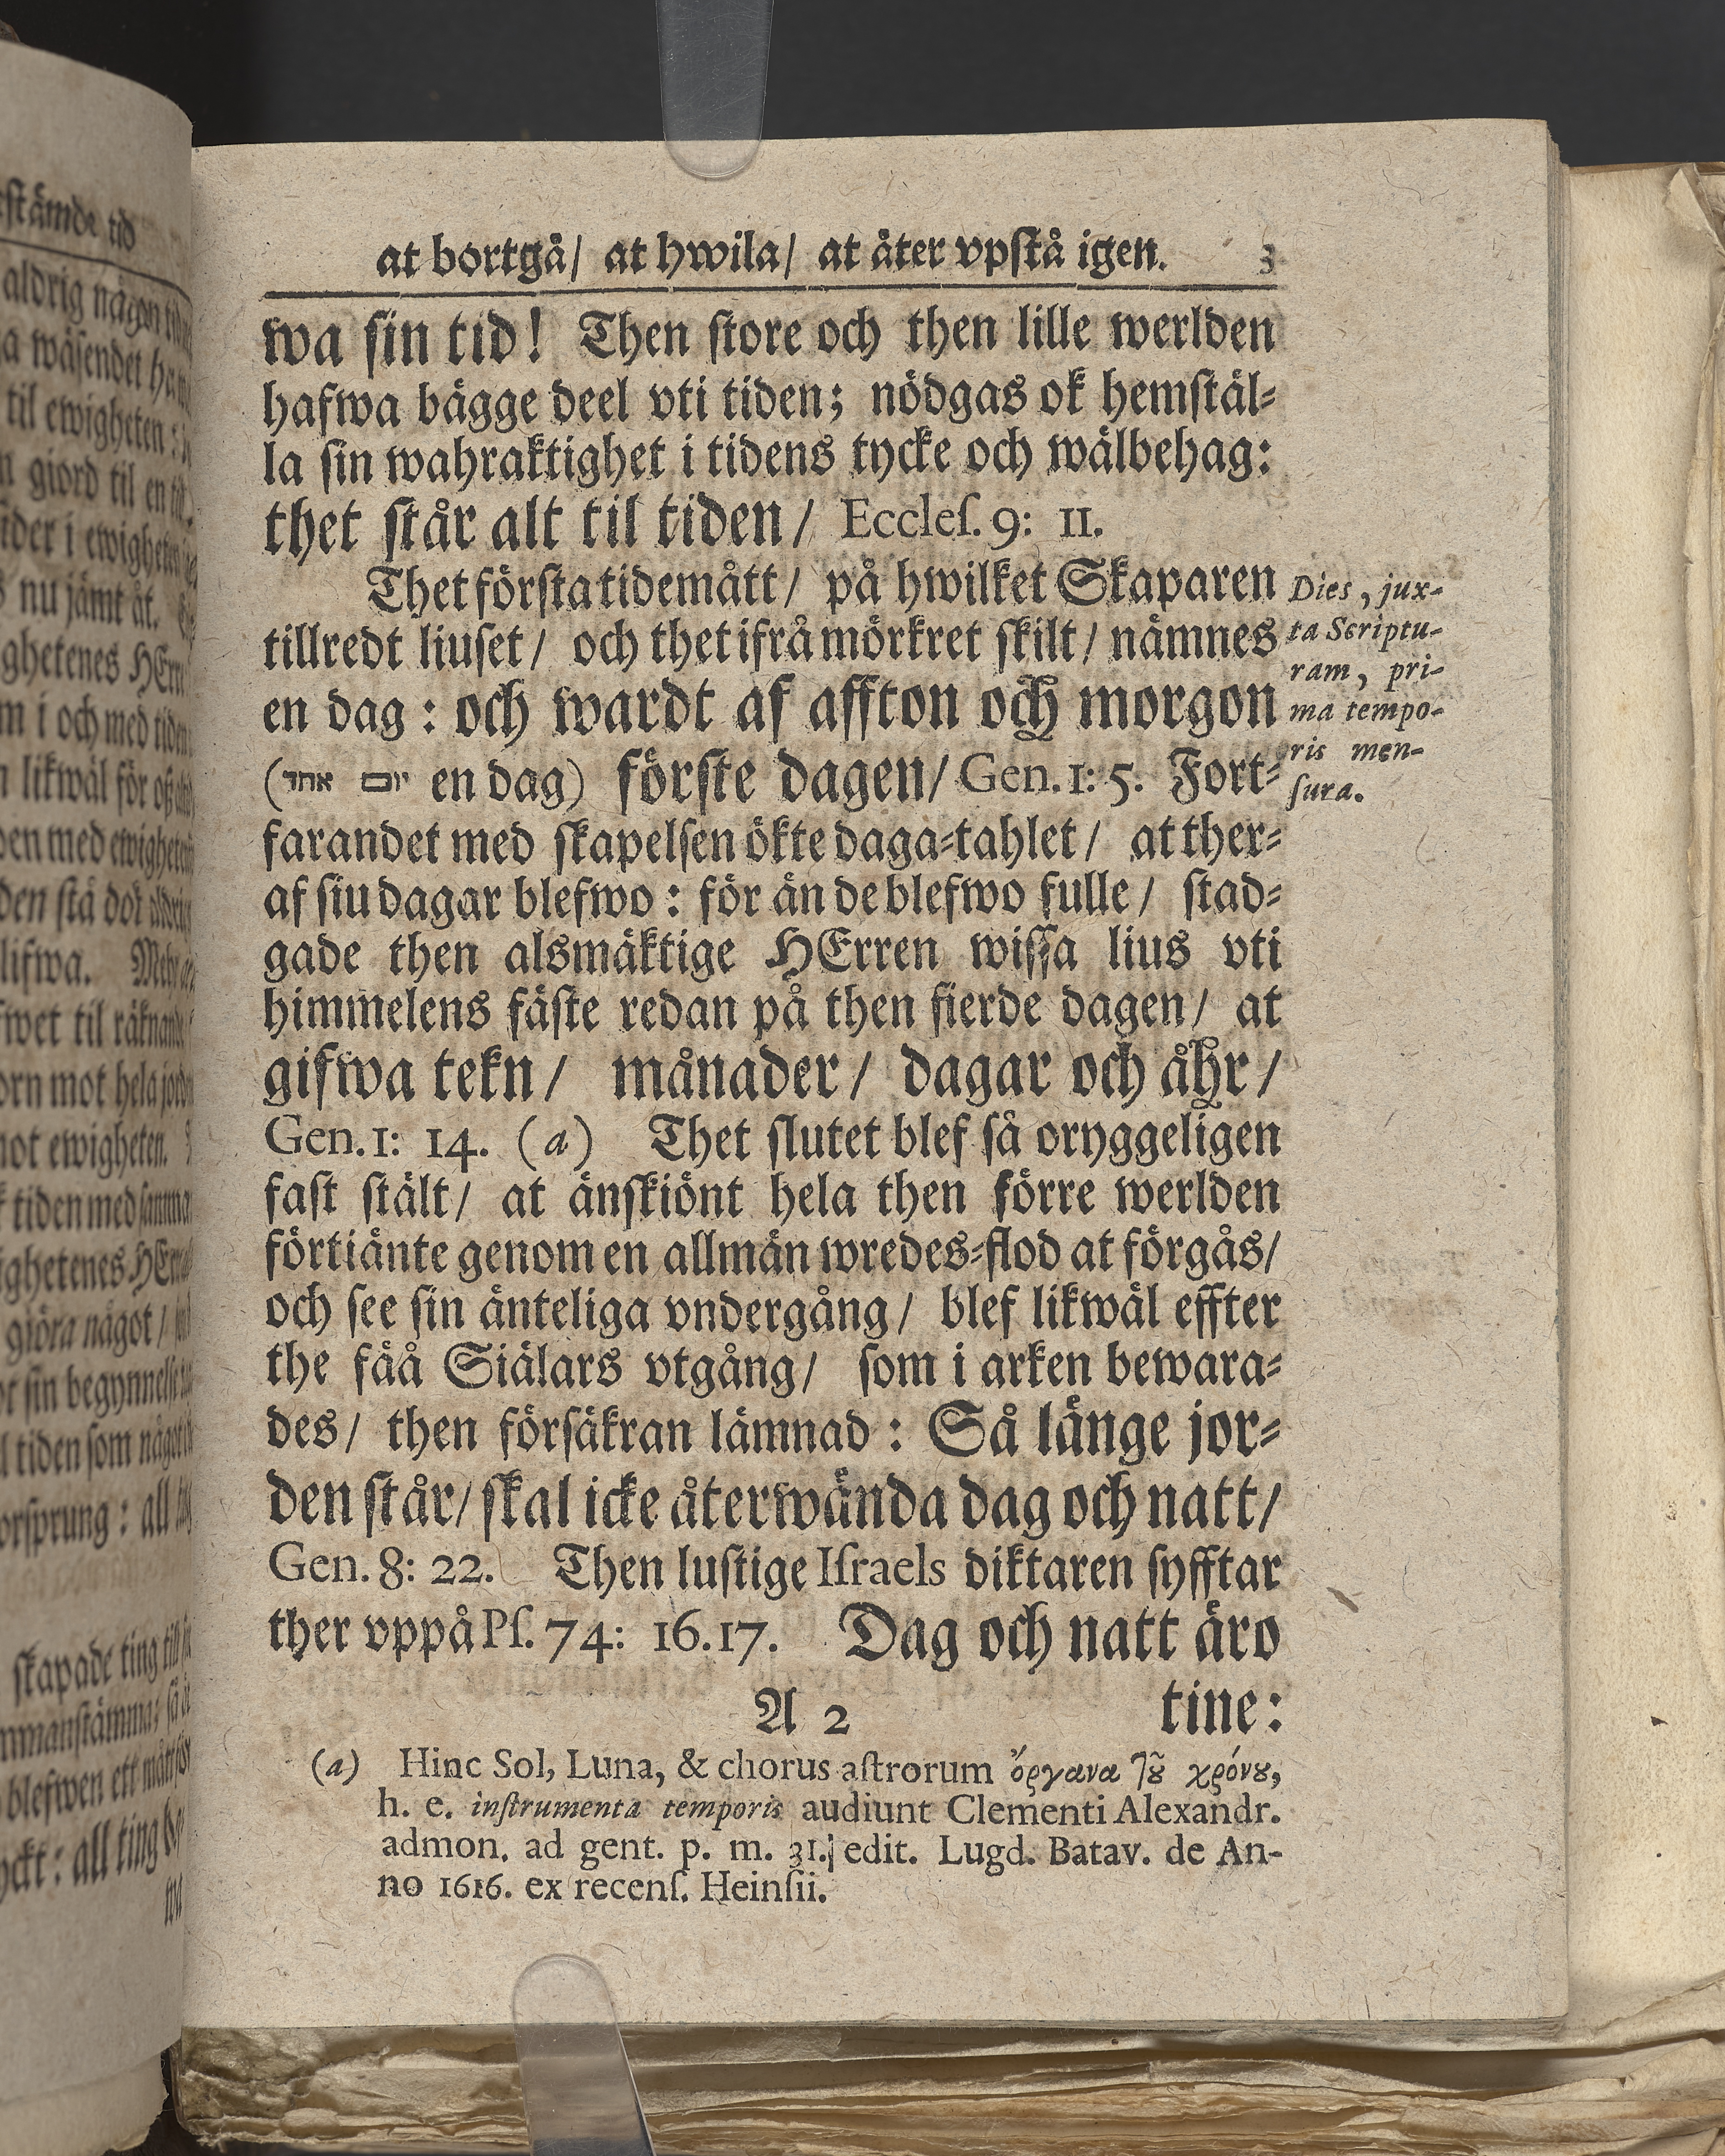 at bortgå/ at hwila/ at åter vpstå igen. 3
wa sin tid! Then store och then lille werlden
hafwa bägge deel vti tiden; nödgas ok hemstäl-
la sin wahraktighet i tidens tycke och wälbehag:
thet står alt til tiden/ Eccles. 9: 11.
Thet första tidemått/ på hwilket Skaparen
tillredt liuset/ och thet ifrå mörkret skilt/ nämnes
en dag: och wardt af affton och morgon
(יום אחד en dag) förste dagen/ Gen. 1: 5. Fort-
farandet med skapelsen ökte daga-tahlet/ at ther-
af siu dagar blefwo: för än de blefwo fulle/ stad-
gade then alsmäktige HErren wissa lius vti
himmelens fäste redan på then fierde dagen/ at
gifwa tekn/ månader/ dagar och åhr/
Gen. 1: 14. (a) Thet slutet blef så oryggeligen
fast stält/ at änskiönt hela then förre werlden
förtiänte genom en allmän wredes-flod at förgås/
och see sin änteliga vndergång/ blef likwäl effter
the fåå Siälars vtgång/ som i arken bewara-
des/ then försäkran lämnad: Så länge jor-
den står/ skal icke återwända dag och natt/
Gen. 8: 22. Then lustige Israels diktaren syfftar
ther vppå Ps. 74: 16. 17. Dag och natt äro
A 2 tine:
Dies, jux-
ta Scriptu-
ram, pri-
ma tempo-
ris men-
sura.
(a) Hinc Sol, Luna, & chorus astrorum ὄργανα τοῦ χρόνου,
h. e. instrumenta temporis audiunt Clementi Alexandr.
admon. ad gent. p. m. 31. edit. Lugd. Batav. de An-
no 1616. ex recens. Heinsii.